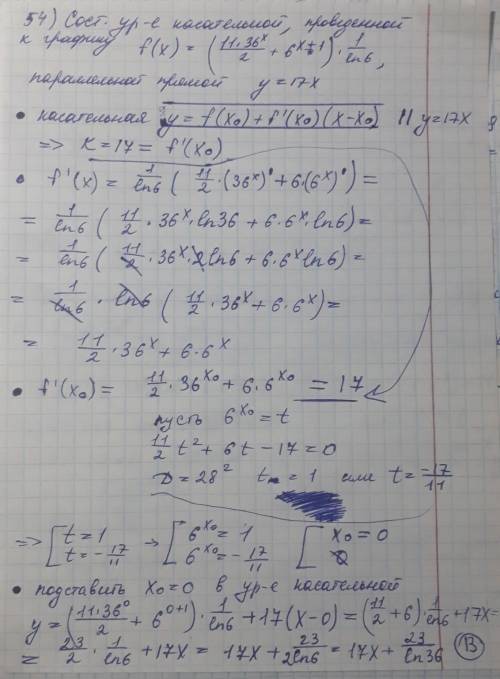 54) Сост. ур-е касательной, проведенной
к графику f(x) = (11·36^x/2 + 6^(x+1)) · 1/ln6,
параллельной прямой y=17x
• касательная y = f(x₀) + f'(x₀)(x-x₀) || y=17x
=> K = 17 = f'(x₀)
• f'(x) = 1/ln6 ( 11/2 · (36^x)' + 6·(6^x)' ) =
= 1/ln6 ( 11/2 · 36^x · ln36 + 6·6^x · ln6 ) =
= 1/ln6 ( 11/2 · 36^x · 2ln6 + 6·6^x ln6 ) =
= 1/ln6 · ln6 ( 11/2 · 36^x + 6·6^x ) =
= 11/2 · 36^x + 6·6^x
• f'(x₀) = 11/2 · 36^x₀ + 6·6^x₀ = 17
пусть 6^x₀ = t
11/2 t² + 6t - 17 = 0
D = 28² t = 1 или t = -17/11
=> [ t = 1 → [ 6^x₀ = 1 [ x₀ = 0
t = -17/11 6^x₀ = -17/11 ∅
• подставить x₀=0 в ур-е касательной
y = (11·36^0/2 + 6^(0+1)) · 1/ln6 + 17(x-0) = (11/2 + 6) · 1/ln6 + 17x =
= 23/2 · 1/ln6 + 17x = 17x + 23/2ln6 = 17x + 23/ln36 (B)